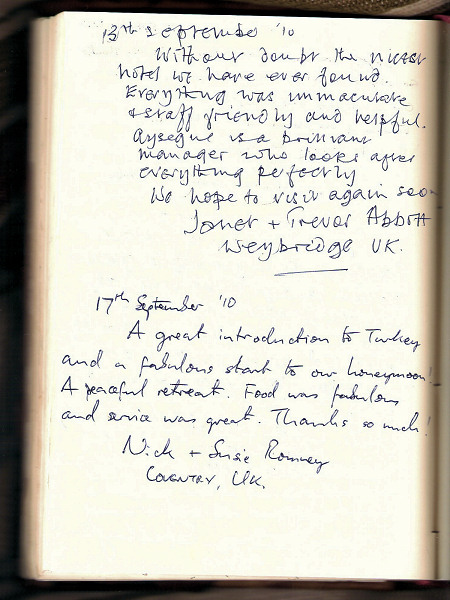 13th September '10
Without doubt the nicest
hotel we have ever found.
Everything was immaculate
+ staff friendly and helpful.
Aysegul is a brilliant
manager who looks after
everything perfectly
We hope to visit again soon
Janet + Trevor Abbott
Weybridge UK.
17th September '10
A great introduction to Turkey
and a fabulous start to our honeymoon!
A peaceful retreat. Food was fabulous
and service was great. Thanks so much!
Nick + Susie Romney
COVENTRY, UK.